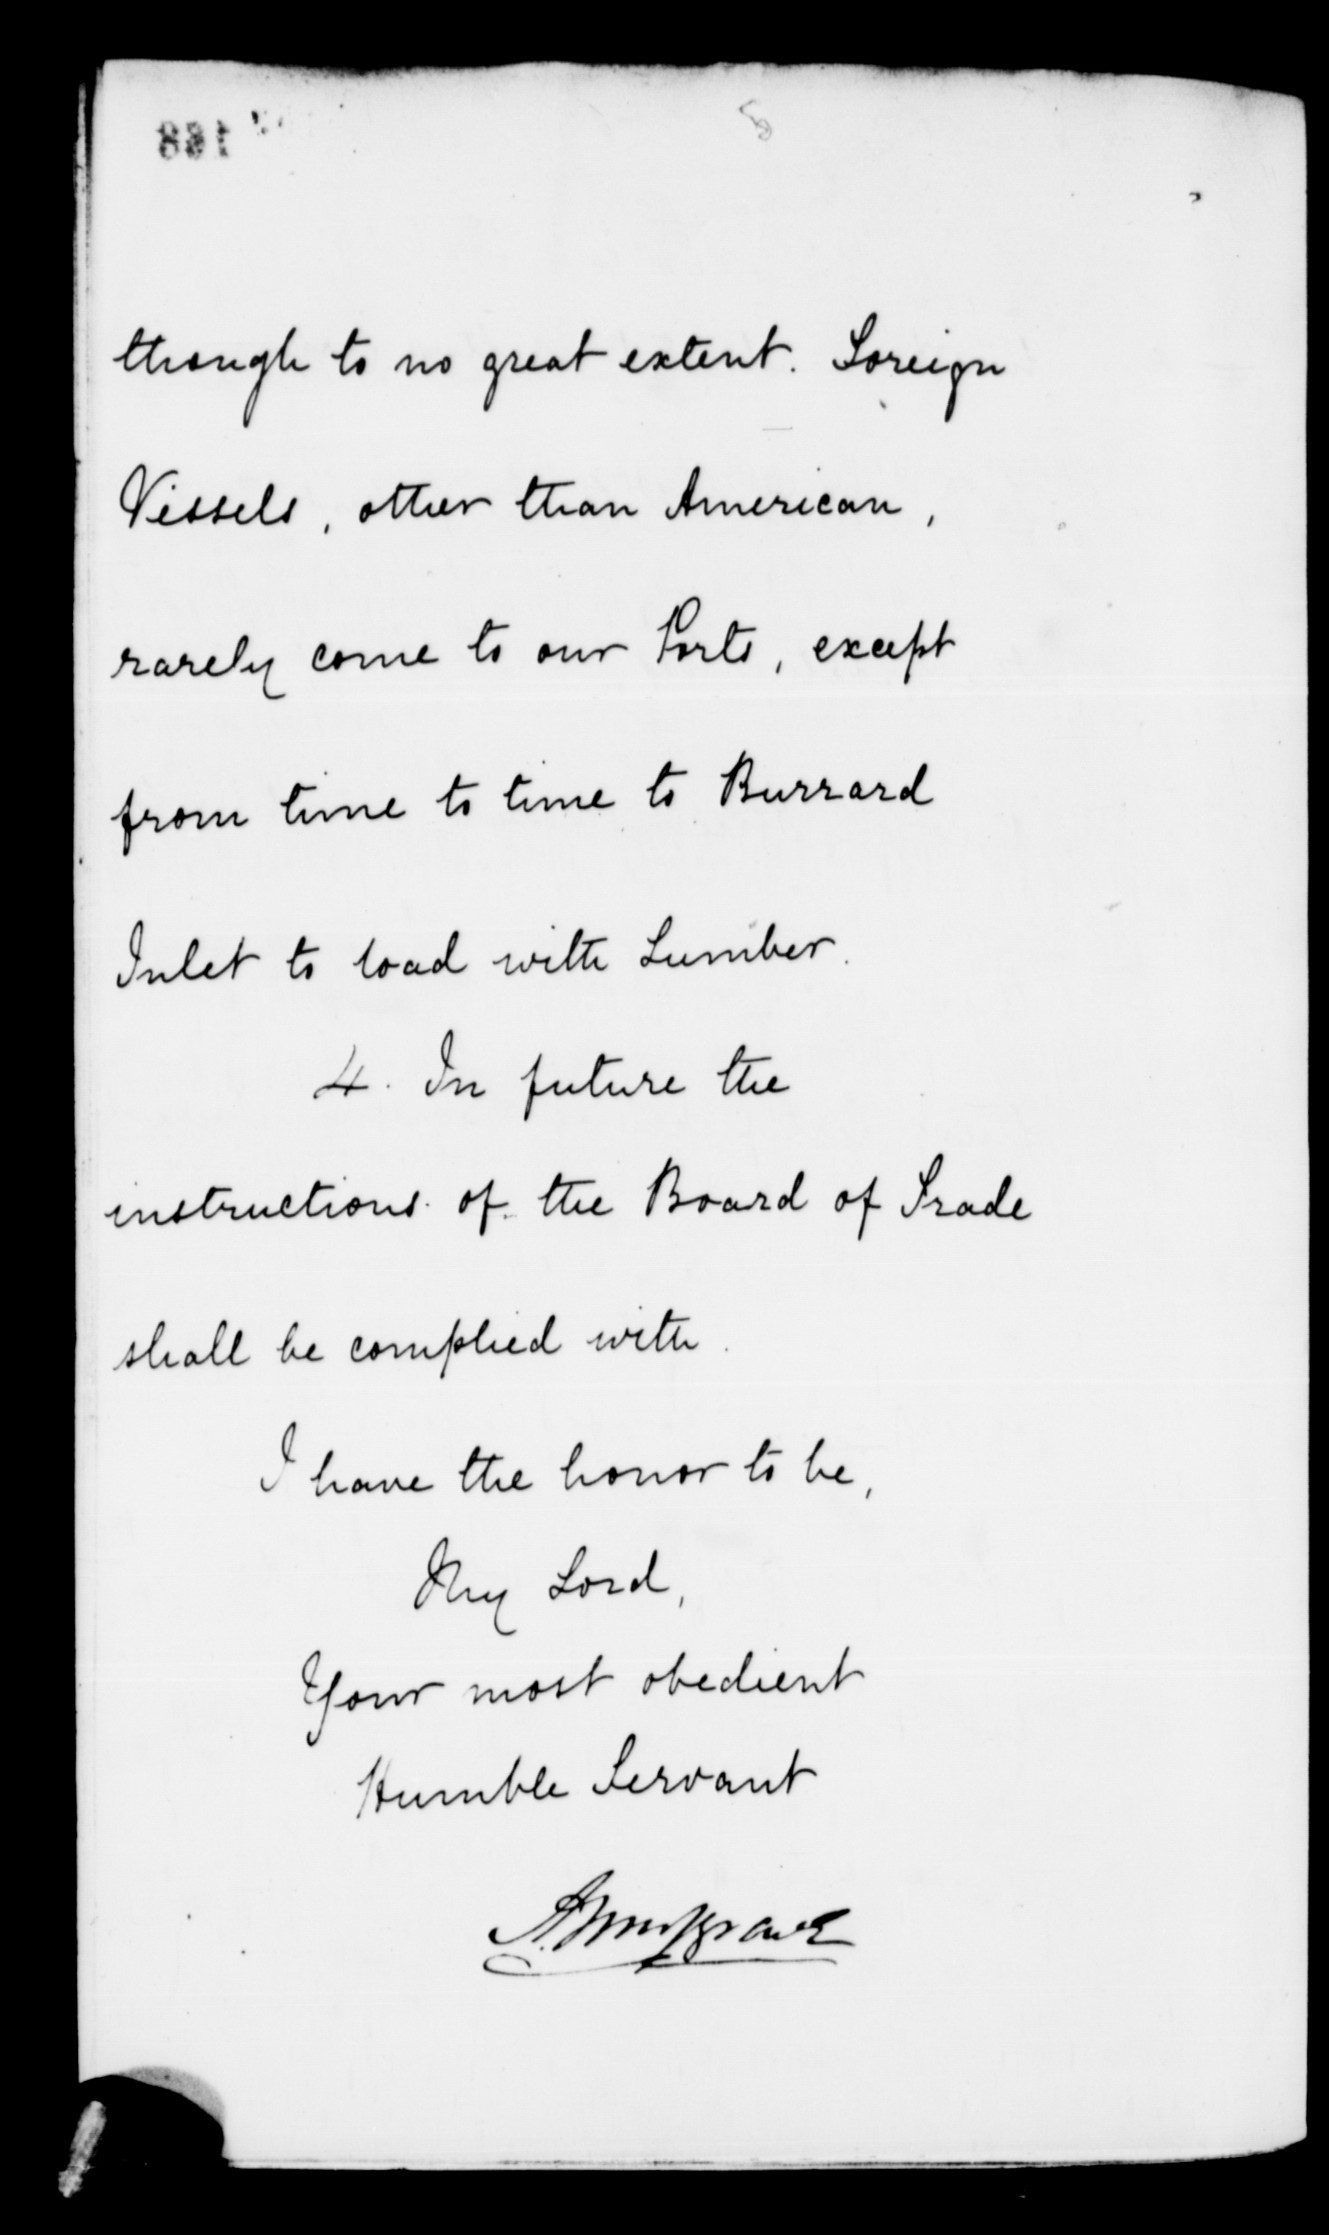 though to no great extent. Foreign
Vessels, other than American,
rarely come to our Ports, except
from time to time to Burrard
Inlet to load with Lumber.
4. In future the
instructions of the Board of Trade
shall be complied with.
I have the honor to be,
My Lord,
Your most obedient
Humble Servant
A. Musgrave